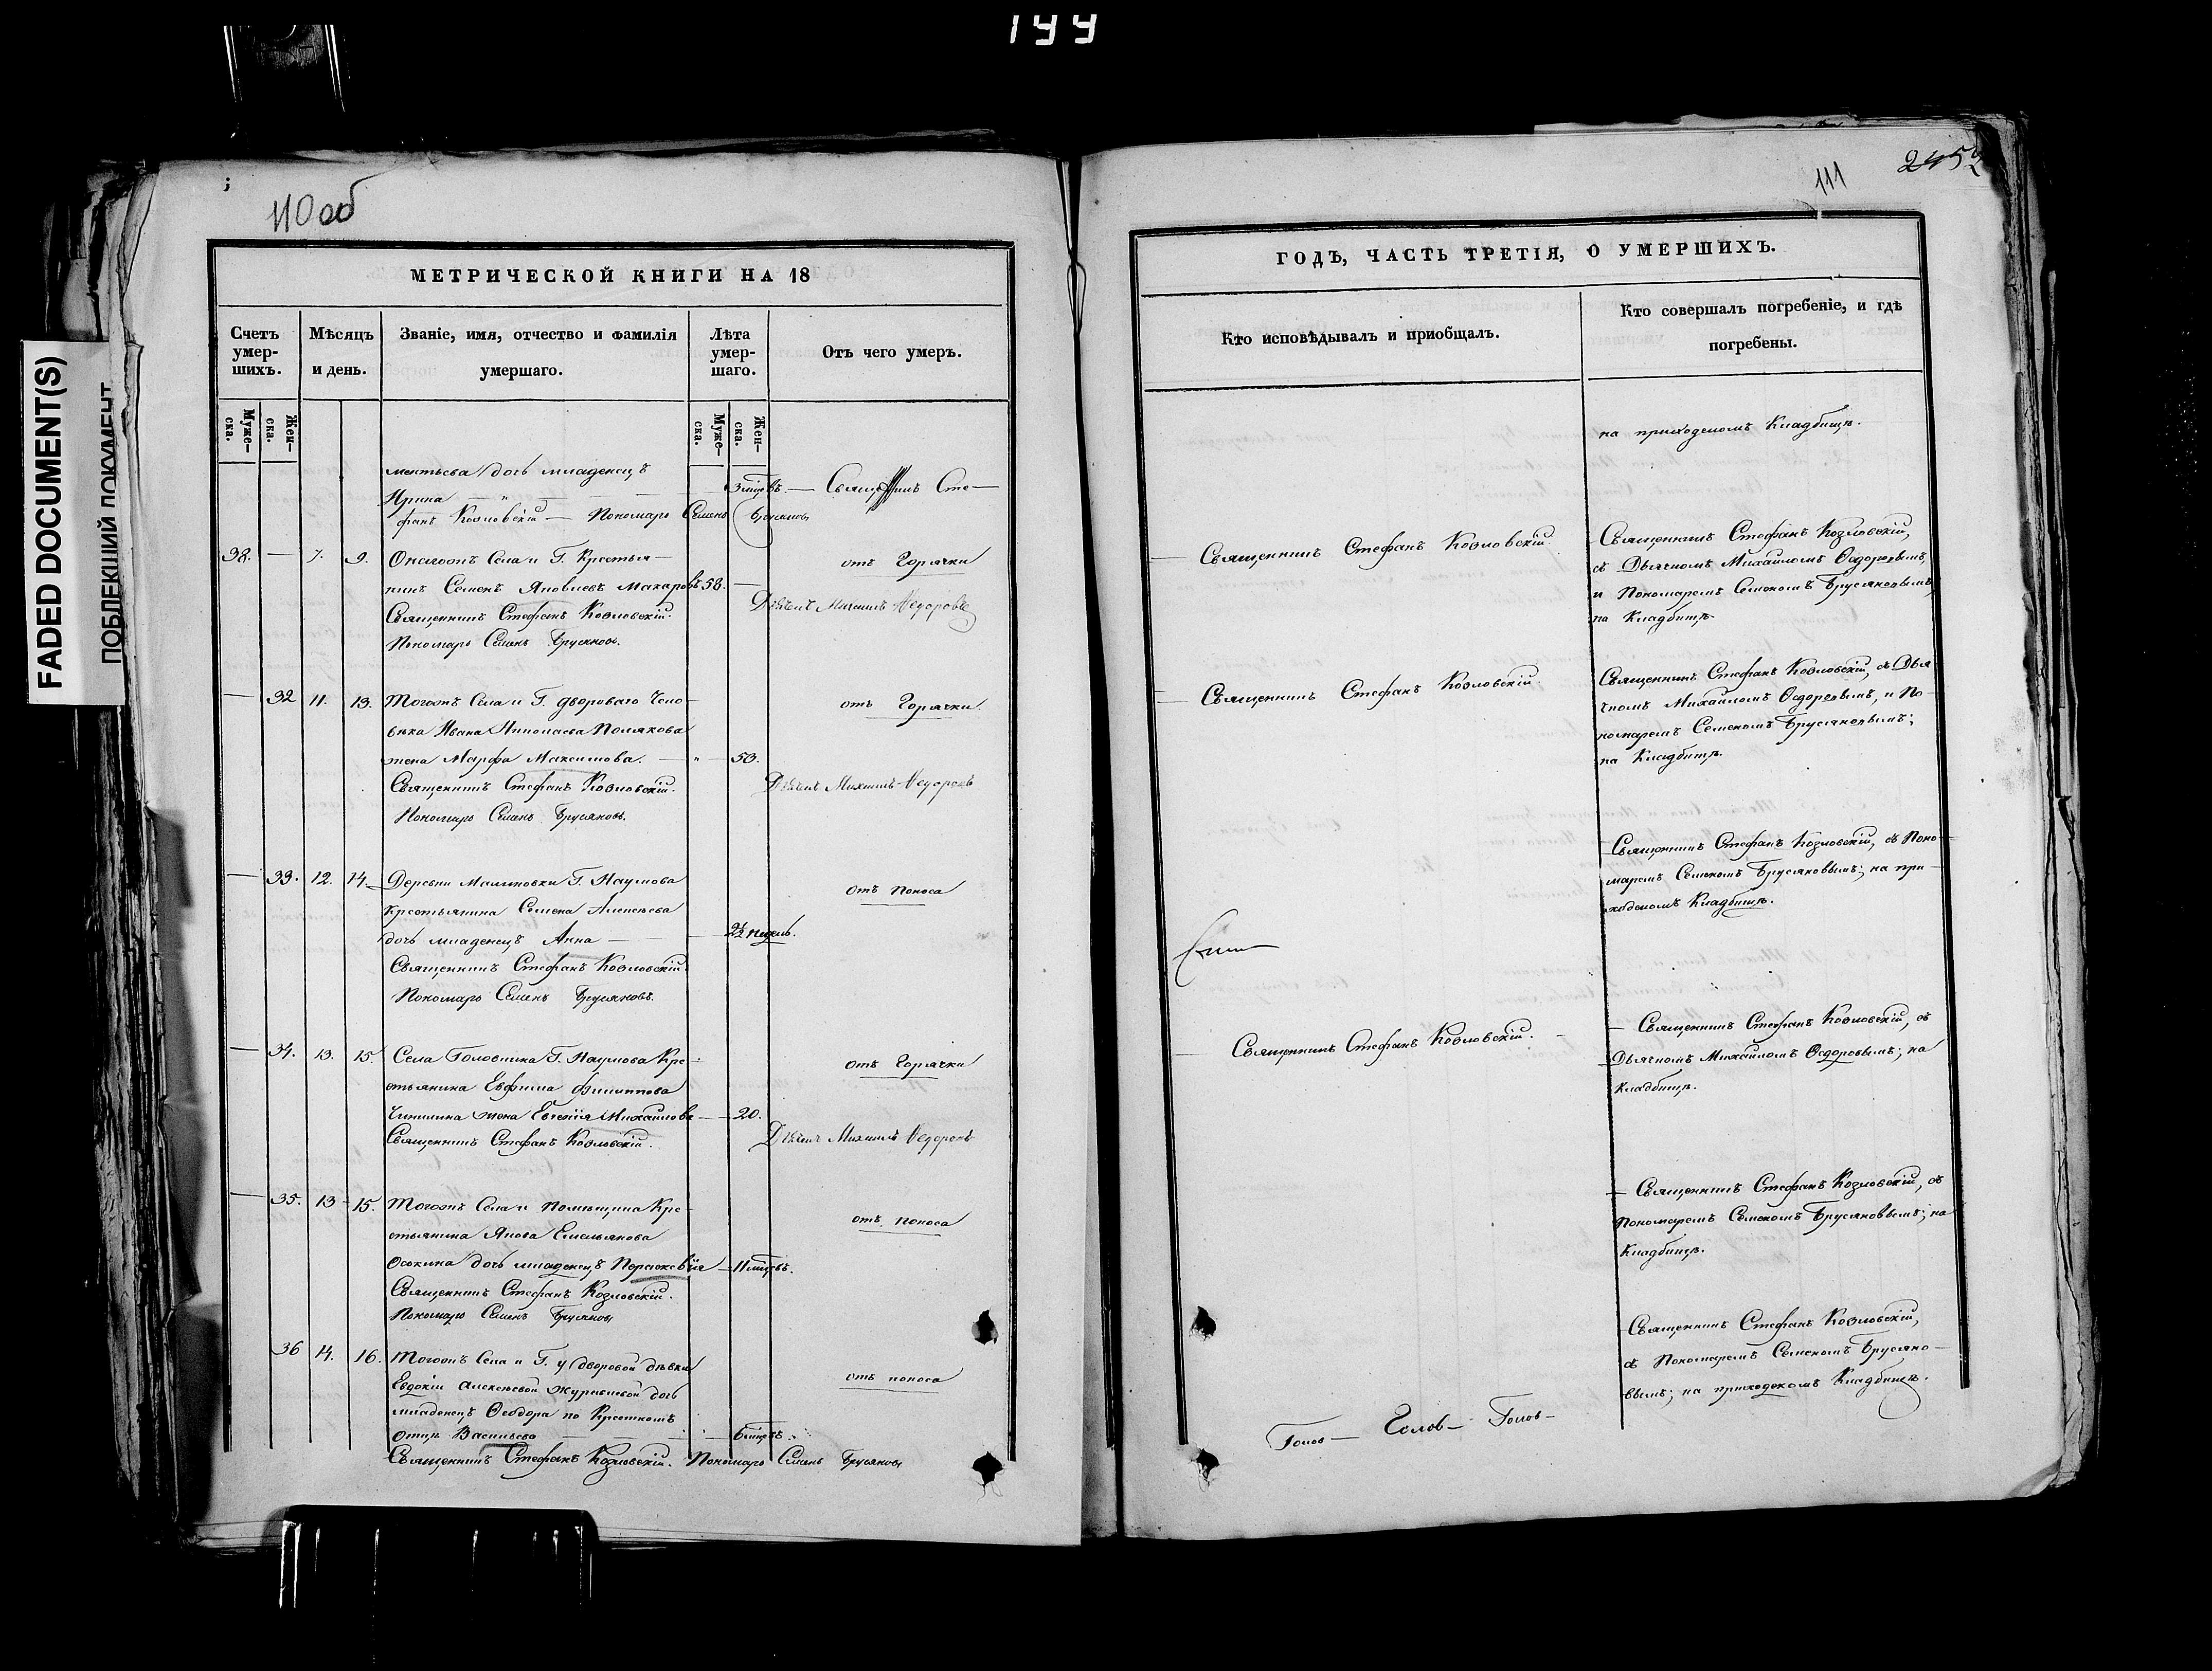 199
FADED DOCUMENT(S)
ПОБЛЕКШИЙ ДОКУМЕНТ
110 об
МЕТРИЧЕСКОЙ КНИГИ НА 18
Счетъ умер-шихъ.
Мѣсяцъ и день.
Званіе, имя, отчество и фамилія умершаго.
Лѣта умер-шаго.
Отъ чего умеръ.
Муже-ска.
Жен-ска.
Муже-ска.
Жен-ска.
дочь младенецъ
Ирина — Священникъ Сте-
фанъ Козловскій — Пономарь Семенъ Брусяновъ
38. — 7. 9. села и Г. Крестья- отъ Горячки
нинъ Семенъ Яковлевъ Макаровъ 58. —
Священникъ Стефанъ Козловскій. Дьячекъ Михаилъ Федоровъ
Пономарь Семенъ Брусяновъ.
— 32 11. 13. Тогожъ Села и Г. двороваго Чело- отъ Горячки
вѣка Ивана Николаева Полякова
жена Марфа Максимова. — 50.
Священникъ Стефанъ Козловскій. Дьячекъ Михаилъ Федоровъ
Пономарь Семенъ Брусяновъ.
— 33. 12. 14. Деревни Малиновки Г. Наумова отъ поноса
Крестьянина Семена Алексѣева
дочь младенецъ Анна — 2½ недѣль.
Священникъ Стефанъ Козловскій
Пономарь Семенъ Брусяновъ.
— 34. 13. 15. Села Головина Г. Наумова Кре- отъ Горячки
стьянина Евфима Филиппова
жена Евгенія Михайлова — 20.
Священникъ Стефанъ Козловскій. Дьячекъ Михаилъ Федоровъ
— 35. 13 15. Тогожъ Села и Помѣщика Кре- отъ поноса
стьянина Якова Емельянова
Осокина дочь младенецъ Параскевія — 11 мѣсцъ.
Священникъ Стефанъ Козловскій.
Пономарь Семенъ Брусяновъ
36 14. 16. Тогожъ Села и Г. у дворовой дѣвки отъ поноса
Евдокіи Алексѣевой Журавлевой дочь
младенецъ Ѳеодора по Крестномъ
Отцѣ Васильева — 6 мѣсцъ.
Священникъ Стефанъ Козловскій. Пономарь Семенъ Брусяновъ
111
2452
ГОДЪ, ЧАСТЬ ТРЕТІЯ, О УМЕРШИХЪ.
Кто исповѣдывалъ и приобщалъ.
Кто совершалъ погребеніе, и гдѣ погребены.
на приходскомъ Кладбищѣ.
— Священникъ Стефанъ Козловскій. Священникъ Стефанъ Козловскій,
съ Дьячкомъ Михаиломъ Ѳедоровымъ,
и Пономаремъ Семеномъ Брусяновымъ,
на Кладбищѣ.
— Священникъ Стефанъ Козловскій. Священникъ Стефанъ Козловскій, съ Дья-
чкомъ Михаиломъ Ѳедоровымъ, и По-
номаремъ Семеномъ Брусяновымъ;
на Кладбищѣ.
Священникъ Стефанъ Козловскій, съ Поно-
маремъ Семеномъ Брусяновымъ; на при-
ходскомъ Кладбищѣ.
— Священникъ Стефанъ Козловскій. — Священникъ Стефанъ Козловскій, съ
Дьячкомъ Михаиломъ Ѳедоровымъ; на
Кладбищѣ.
— Священникъ Стефанъ Козловскій, съ
Пономаремъ Семеномъ Брусяновымъ; на
Кладбищѣ.
Священникъ Стефанъ Козловскій,
съ Пономаремъ Семеномъ Брусяно-
вымъ; на приходскомъ Кладбищѣ.
Голов— Голов— Голов—